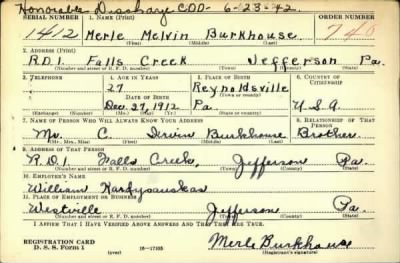 Honorable Discharge CDD- 6-23-42.
SERIAL NUMBER 1. NAME (Print) ORDER NUMBER
1412 Merle Melvin Burkhouse. 740
(First) (Middle) (Last)
2. ADDRESS (Print)
R.D.1. Falls Creek Jefferson Pa.
(Number and street or R. F. D. number) (Town) (County) (State)
3. TELEPHONE 4. AGE IN YEARS 5. PLACE OF BIRTH 6. COUNTRY OF CITIZENSHIP
27 Reynoldsville
DATE OF BIRTH (Town or county)
Dec. 27, 1912 Pa. U.S.A.
(Exchange) (Number) (Mo.) (Day) (Yr.) (State or country)
7. NAME OF PERSON WHO WILL ALWAYS KNOW YOUR ADDRESS 8. RELATIONSHIP OF THAT PERSON
Mr. C. Irvin Burkhouse Brother.
(Mr., Mrs., Miss) (First) (Middle) (Last)
9. ADDRESS OF THAT PERSON
R.D.1 Falls Creek, Jefferson Pa.
(Number and street or R. F. D. number) (Town) (County) (State)
10. EMPLOYER'S NAME
William Kardysauskas
11. PLACE OF EMPLOYMENT OR BUSINESS
Westville Jefferson Pa.
(Number and street or R. F. D. number) (Town) (County) (State)
I AFFIRM THAT I HAVE VERIFIED ABOVE ANSWERS AND THAT THEY ARE TRUE.
REGISTRATION CARD Merle Burkhouse
D. S. S. Form 1 (over) 16-17105 (Registrant's signature)